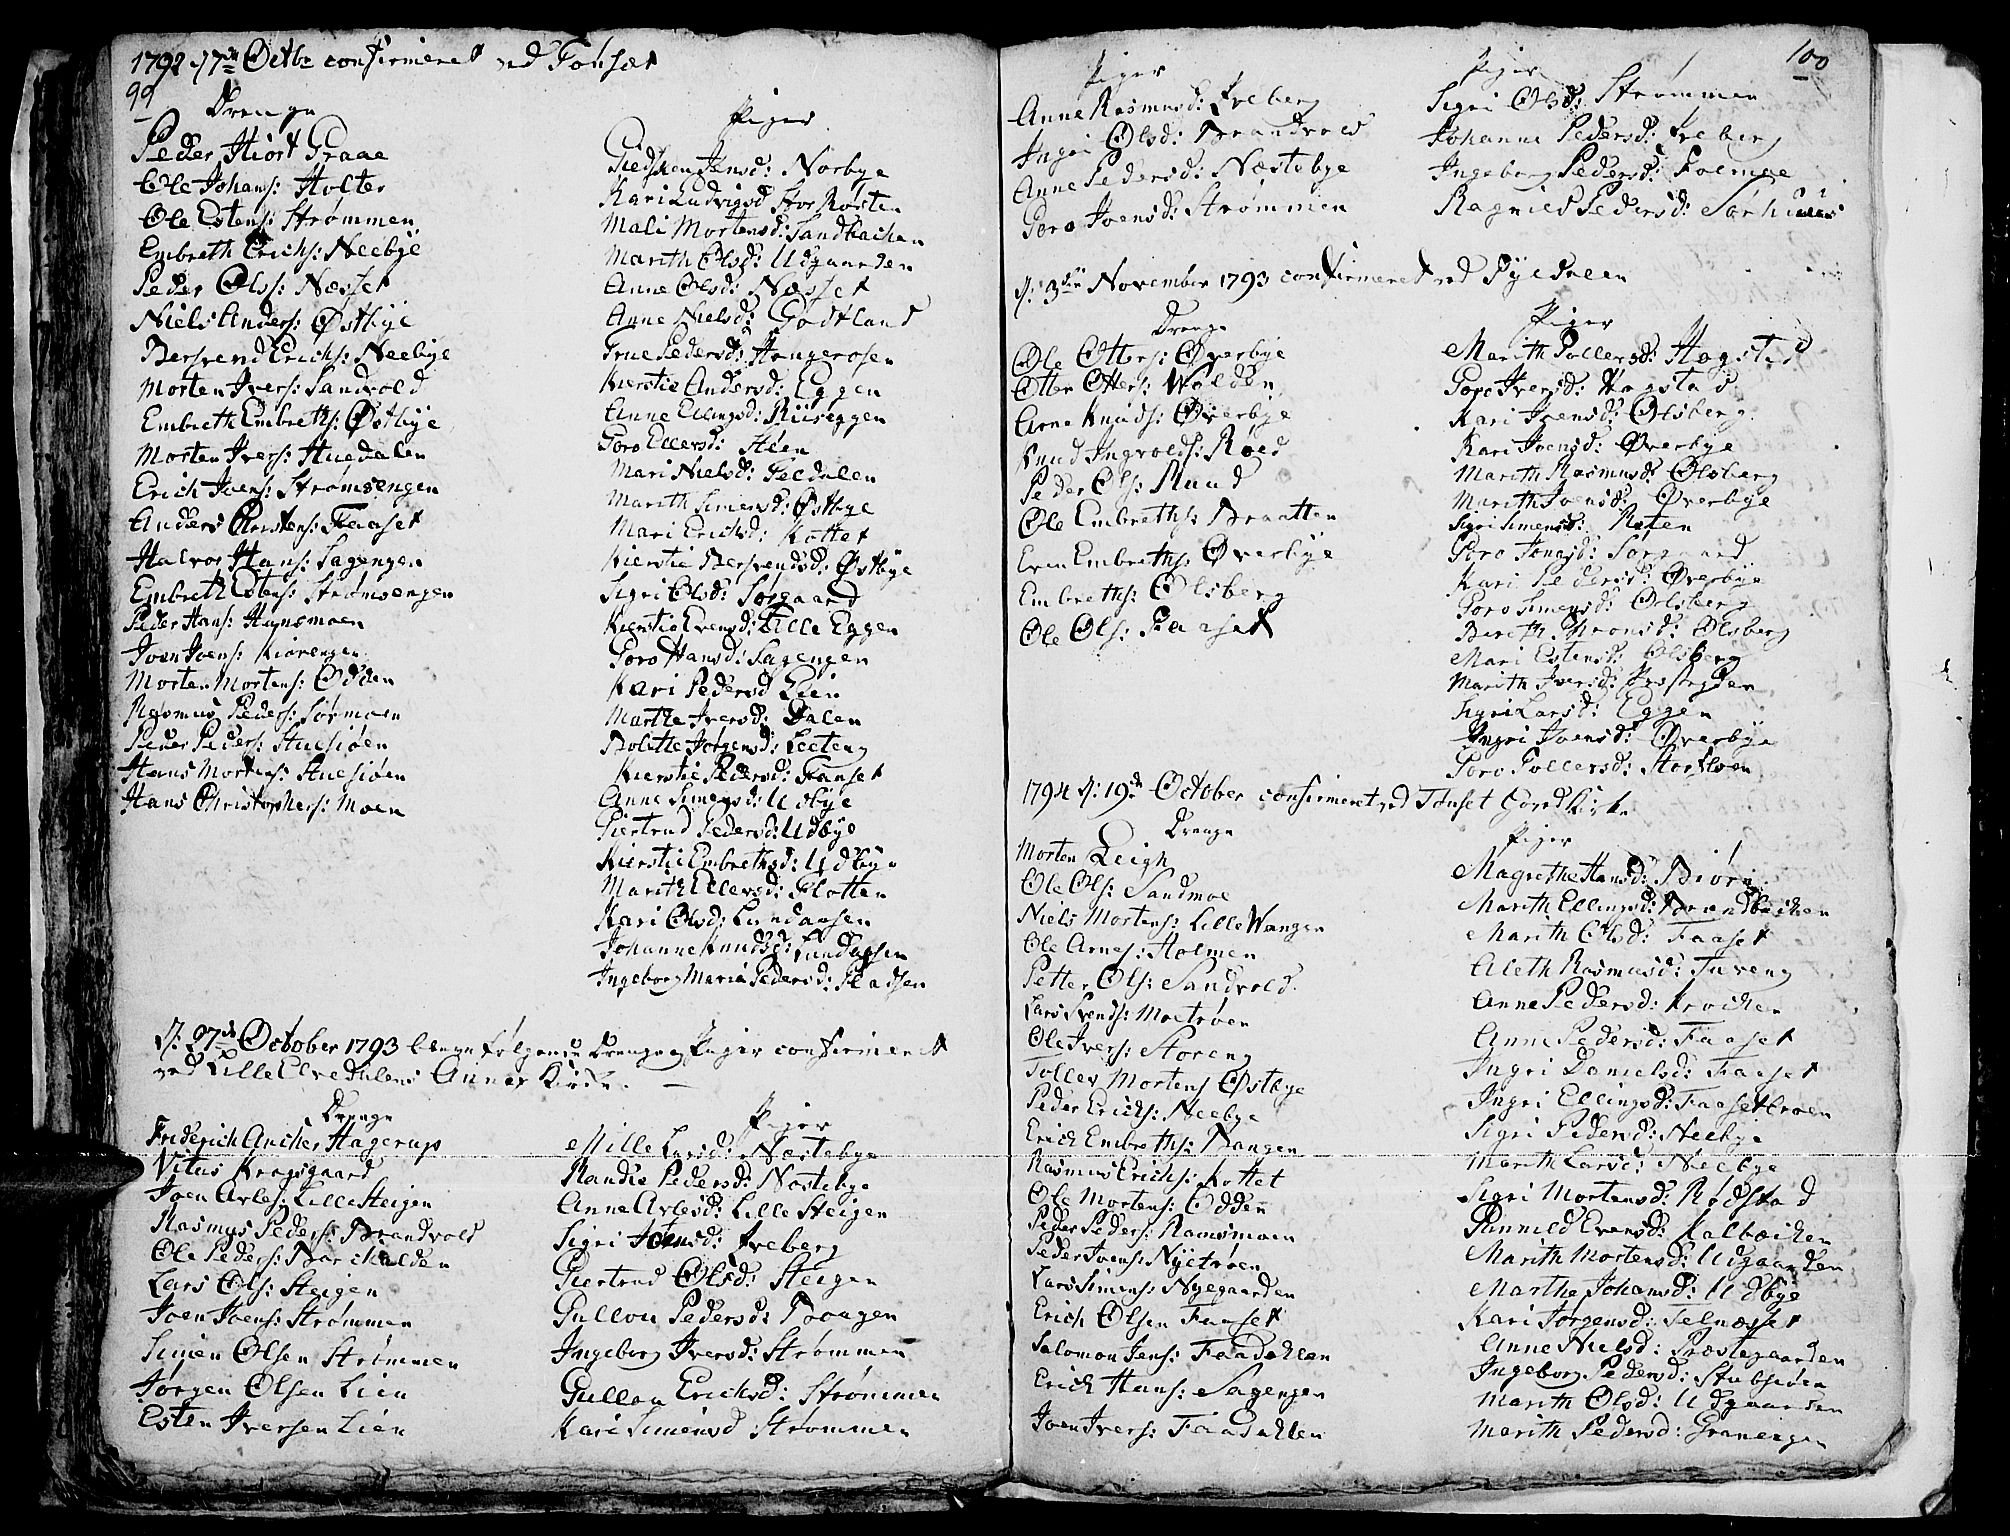 1792 17de Octbr confirmeret ved Tønset
99
Drenge
Peder Hiort Graae
Ole Johans: Holter
Ole Estens: Strømmen
Embreth Erichs: Neebye
Peder Ols: Næsset
Niels Anders: Østbye
Bersvend Erichs: Neebye
Morten Ivers: Sandvold
Embreth Embreths: Østbye
Morten Ivers: Huedalen
Erich Joens: Strømsengen
Anders Christens: Faaset
Halvor Hans: Sagengen
Embreth Estens: Strømsengen
Peder Hans: Hansmoen
Joen Joens: Kiørengen
Morten Mortens: Odden
Rasmus Peders: Sørmoen
Peder Peders: Stuesiøen
Hans Mortens: Stuesiøen
Hans Christophers: Moen
Piger
Giedsken Jensd: Norbye
Kari Ludvigsd StorRøsten
Mali Mortensd: Sandbacken
Marith Olsd: Udgaarden
Anne Olsd: Næsset
Anne Nielsd: Godtland
Grue Pedersd: Hangerosen
Kierstie Andersd: Eggen
Anne Ellingsd: Riiseggen
Goro Ellersd: Støen
Mari Nielsd: Teldalen
Marith Simensd: Østbye
Mari Erichsd: Kottet
Kierstie Bersvendsd: Østbye
Sigri Olsd: Sørgaard
Kierstie Evensd: Lille Eggen
Goro Hansd: Sagengen
Kari Pedersd Lien
Marthe Iversd: Dalen
Bolitte Jørgensd: Leeteng
Kierstie Pedersd: Faaset
Anne Simensd: Udbye
Giertrud Pedersd: Udbye
Kierstie Embrethsd: Udbye
Marith Ellersd: Plotten
Kari Olsd: Lundaasen
Johanne Knudsd: Lundaasen
Ingeborg Maria Pedersd: Pladsen
d: 27de October 1793 bleve følgende Drenge og Piger confirmeret
ved Lille Elvedalens Annex Kirke.
Drenge
Friderich Ancher Hagerup
Vitus Krogsgaard
Joen Arles: Lille Steigen
Rasmus Peders: Brandvold
Ole Peders: Barchalden
Lars Ols: Steigen
Joen Joens: Strømmen
Simen Olsen Strømmen
Jørgen Olsen Lien
Esten Iversen Lien
Piger
Mille Larsd: Næstebye
Randie Pedersd: Næstebye
Anne Arlesd: Lille Steigen
Sigri Joensd: Ireberg
Giertrud Olsd: Steigen
Gullou Pedersd: Baagen
Ingeborg Iversd: Strømmen
Gullou Erichsd: Strømmen
Kari Simensd Strømmen
100
Piger
Anne Rasmusd: Ireberg
Ingri Olsd: Brandvold
Anne Pedersd: Næstebye
Goro Joensd: Strømmen
Piger
Sigri Olsd: Strømmen
Johanne Pedersd: Ireberg
Ingeborg Pedersd:
Ragnild Pedersd:
d: 3die November 1793 confirmeret ved Tyldalen
Drenge
Ole Otters: Øverbye
Otter Otters: Wolden
Arne Knuds: Øverbye
Knud Ingvolds: Røed
Peder Ols: Ruud
Ole Embreths: Braatten
Even Embreths: Øverbye
Embreths: Olsberg
Ole Ols: Paaset
Piger
Marith Tollersd: Hagstad
Goro Iversd: Hagstad
Kari Joensd: Olsberg
Kari Joensd: Øverbye
Marith Rasmusd: Olsberg
Marith Joensd: Øverbye
Sigri Simensd: Roten
Goro Jonsd: Sørgaard
Kari Pedersd: Øverbye
Goro Simensd: Olsberg
Bereth Thronsd: Olsberg
Mari Estensd: Olsberg
Marith Iversd:
Sigri Larsd: Eggen
Ingri Joensd: Øverbye
Goro Tollersd: Storkloen
1794 d: 19de October confirmeret ved Tønset Hoved Kirke
Drenge
Morten Leigh
Ole Ols: Sandmoe
Niels Mortens: Lille Wangen
Ole Arnes: Holmen
Petter Ols: Sandvold.
Lars Svends: Moetrøen
Ole Ivers: Storeng
Toller Mortens Østbye
Peder Erichs: Neebye
Erich Embreths: Bangen
Rasmus Erichs: Kottet
Ole Mortens: Odden
Peder Peders: Ramsmoen
Peder Joens: Nyetrøen
Lars Simens: Nyegaarden
Erich Olsen Faaset
Salomon Jens: Faadahlen
Erich Hans: Sagengen
Joen Ivers: Faadahlen
Piger
Magrethe Hansd: Biørn
Marith Ellingsd: Brandbacken
Marith Olsd: Faaset
Aleth Rasmusd: Tuveng
Anne Pedersd: Krocken
Anne Pedersd: Faaset
Ingri Danielsd: Faaset
Ingri Ellingsd: Faasettrøen
Sigri Pedersd: Neebye
Marith Larsd: Neebye
Sigri Mortensd: Rødstad
Runnild Evensd: Kalbæcken
Marith Mortensd: Udgaarden
Marthe Johansd: Udbye
Kari Jørgensd: Telnæsset
Anne Nielsd: Præstegaarden
Ingeborg Pedersd: Stubsiøen
Marith Olsd: Udgaarden
Marith Pedersd: Granengen